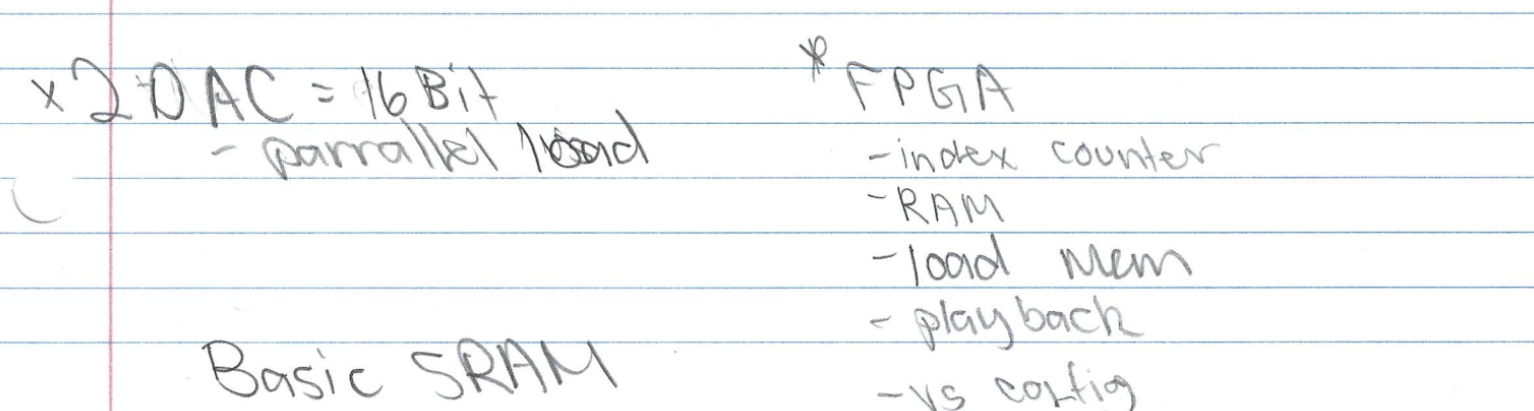 x 2 DAC = 16 Bit
- parrallel load
Basic SRAM
* FPGA
- index counter
- RAM
- load Mem
- playback
- vs config